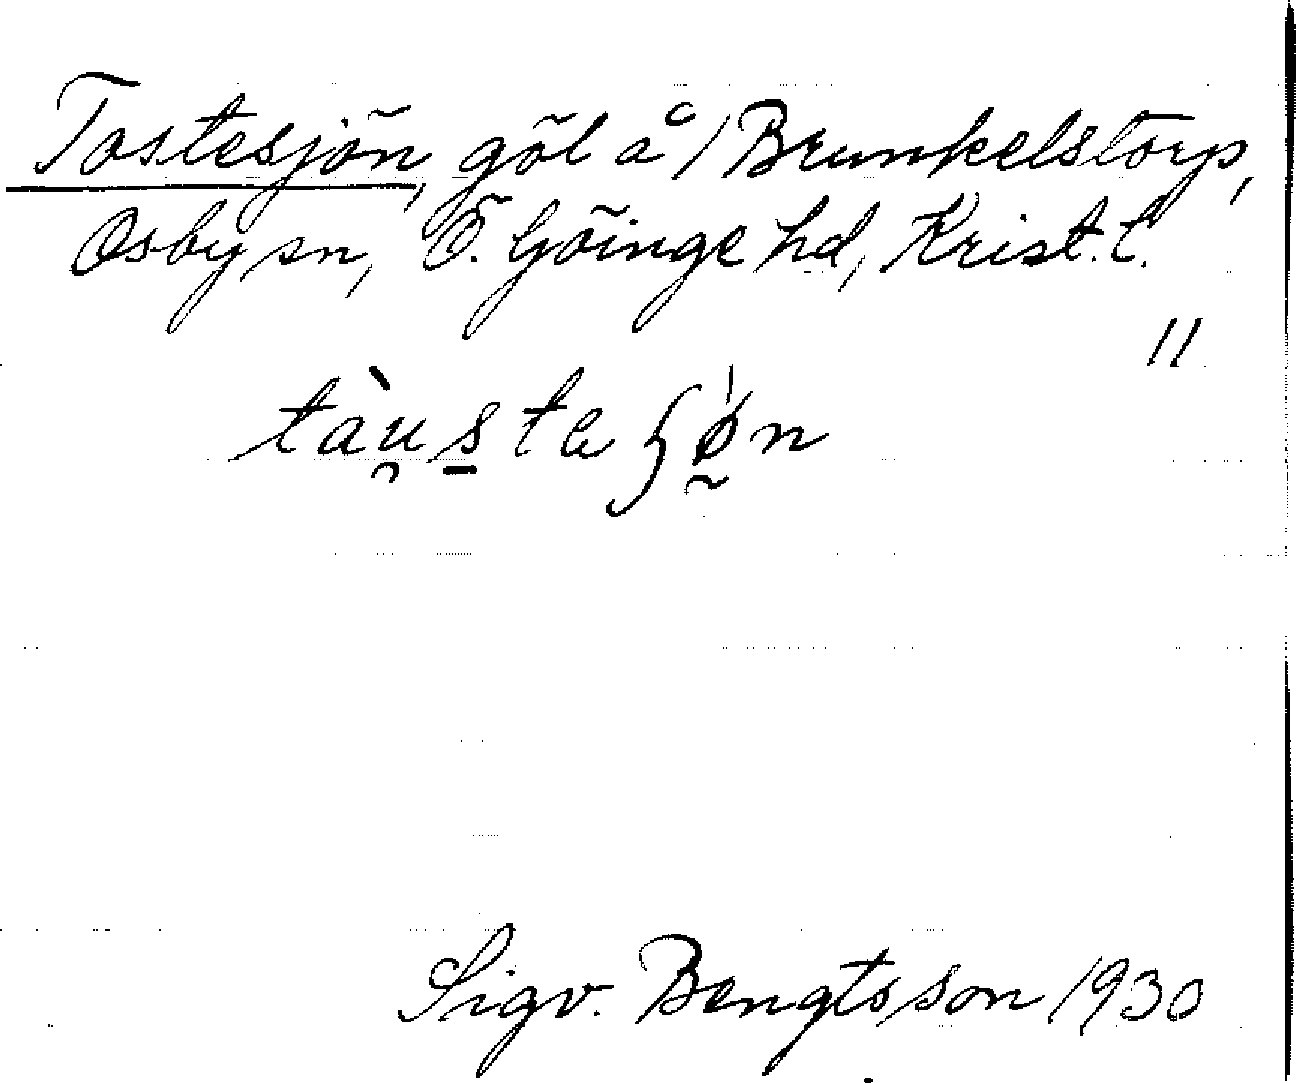 Tostesjön, göl å / Brunkelstorp,
Osby sn, Ö. Göinge hd, Krist. l.
11
Sigv. Bengtsson 1930